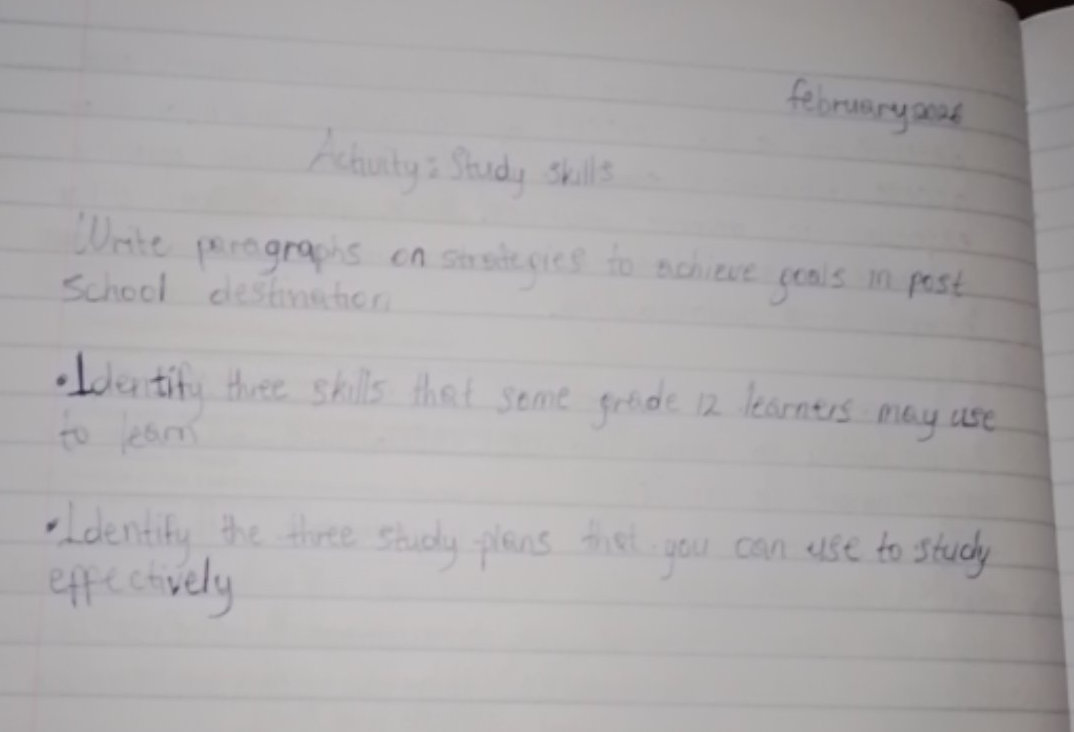 february 2026
Activity: Study skills
Write paragraphs on strategies to achieve goals in post
School destination
• Identify three skills that some grade 12 learners may use
to learn
• Identify the three study plans that you can use to study
effectively